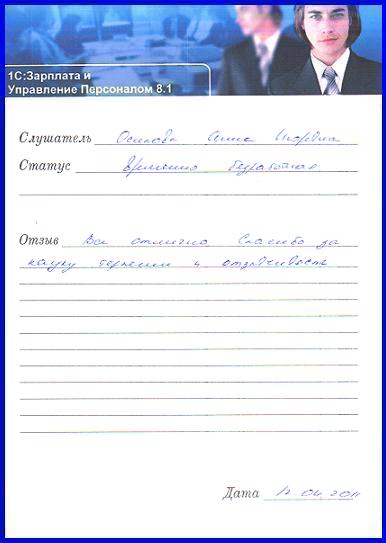 1С:Зарплата и
Управление Персоналом 8.1
Слушатель Осипова Анна Игоревна
Статус Временно безработная
Отзыв Все отлично Спасибо за
науку терпение и отзывчивость
Дата 12.04.2011